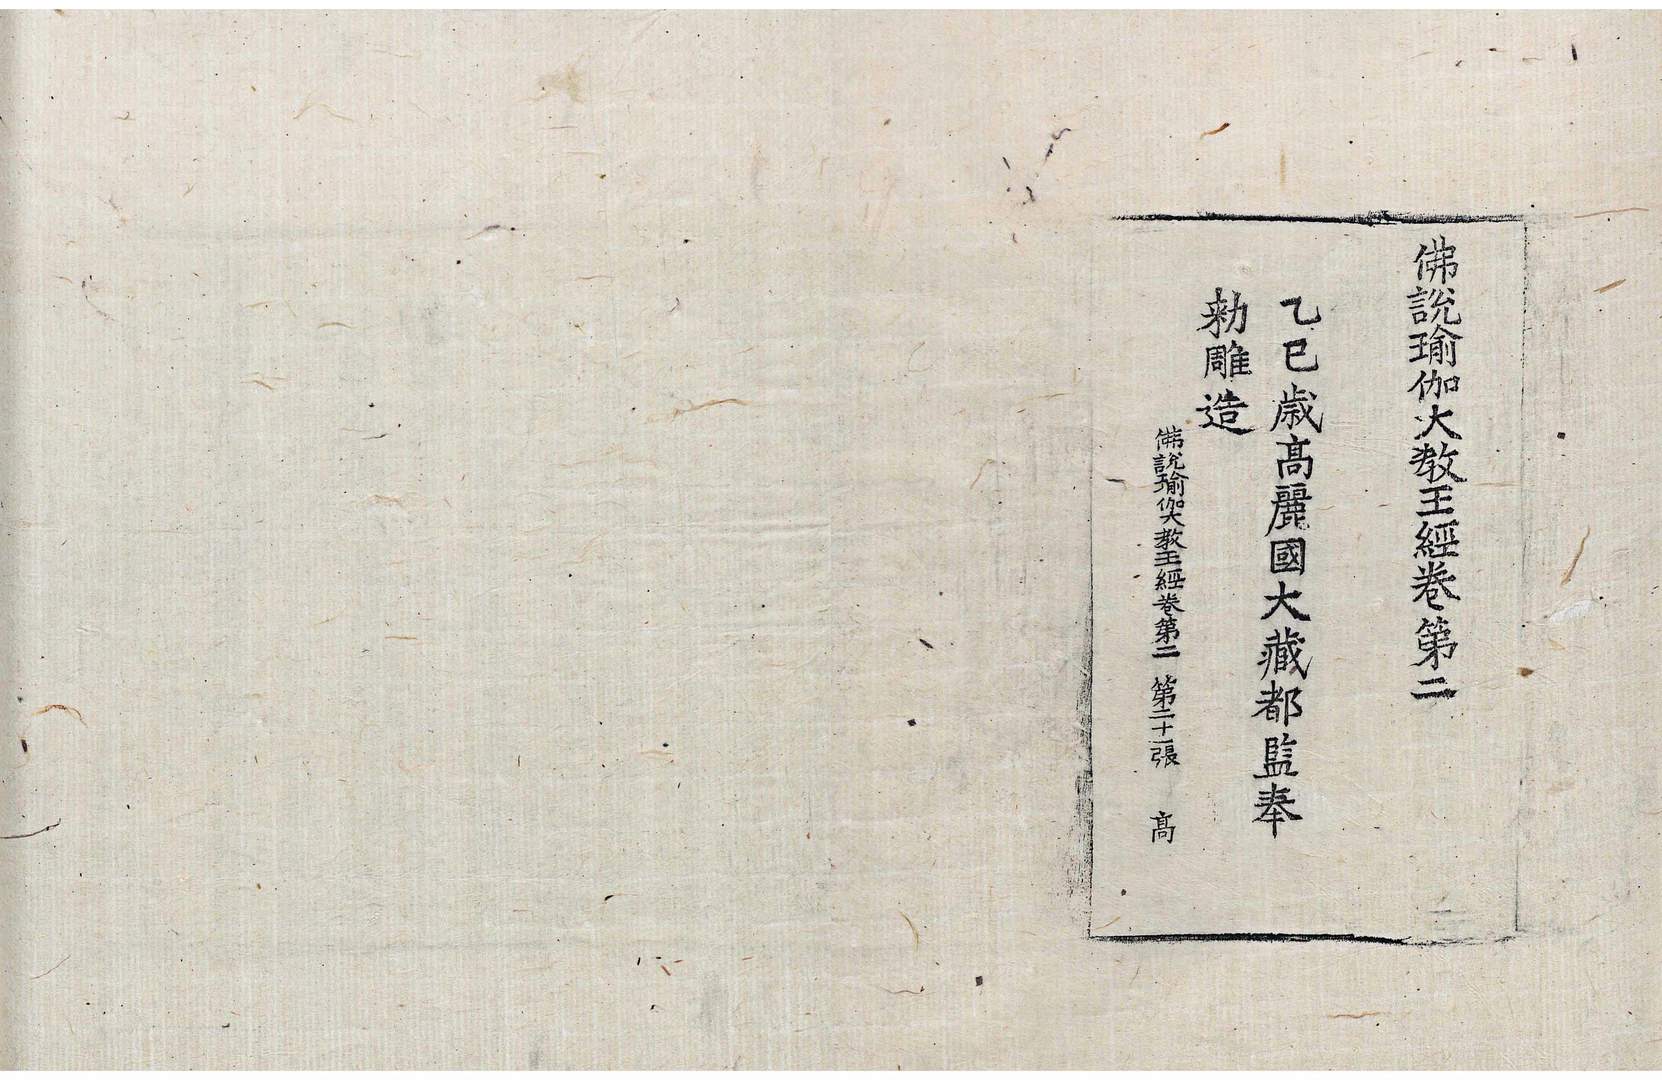 佛說瑜伽大教王經卷第二
乙巳歲高麗國大藏都監奉
勑雕造
佛說瑜伽大教王經卷第二 第二十張 高